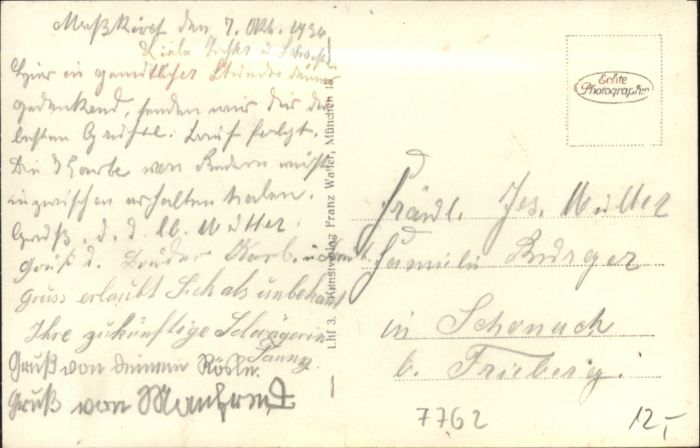 Meßkirch den 7. Okt. 1934
Liebe Tochter u. Schwester
Hier in gemütlicher Stunde deiner
gedenkend, senden wir dir die
besten Grüße. Brief folgt.
Die Karte von Budern
inzwischen erhalten haben.
Gruß d. d. lb. Mutter.
Gruß d. Bruder Karl.
Gruss erlaubt Sich als unbekannt
Ihre zukünftige Schwägerin
Fanny
Gruß von deinem Rösle.
Gruß von Manfred
Lhf 3. Kunstverlag Franz Walter, München
Echte
Photographie
Fräul. Jos. Müller
Familie Burger
in Schonach
b. Trieberg.
7762
12,-